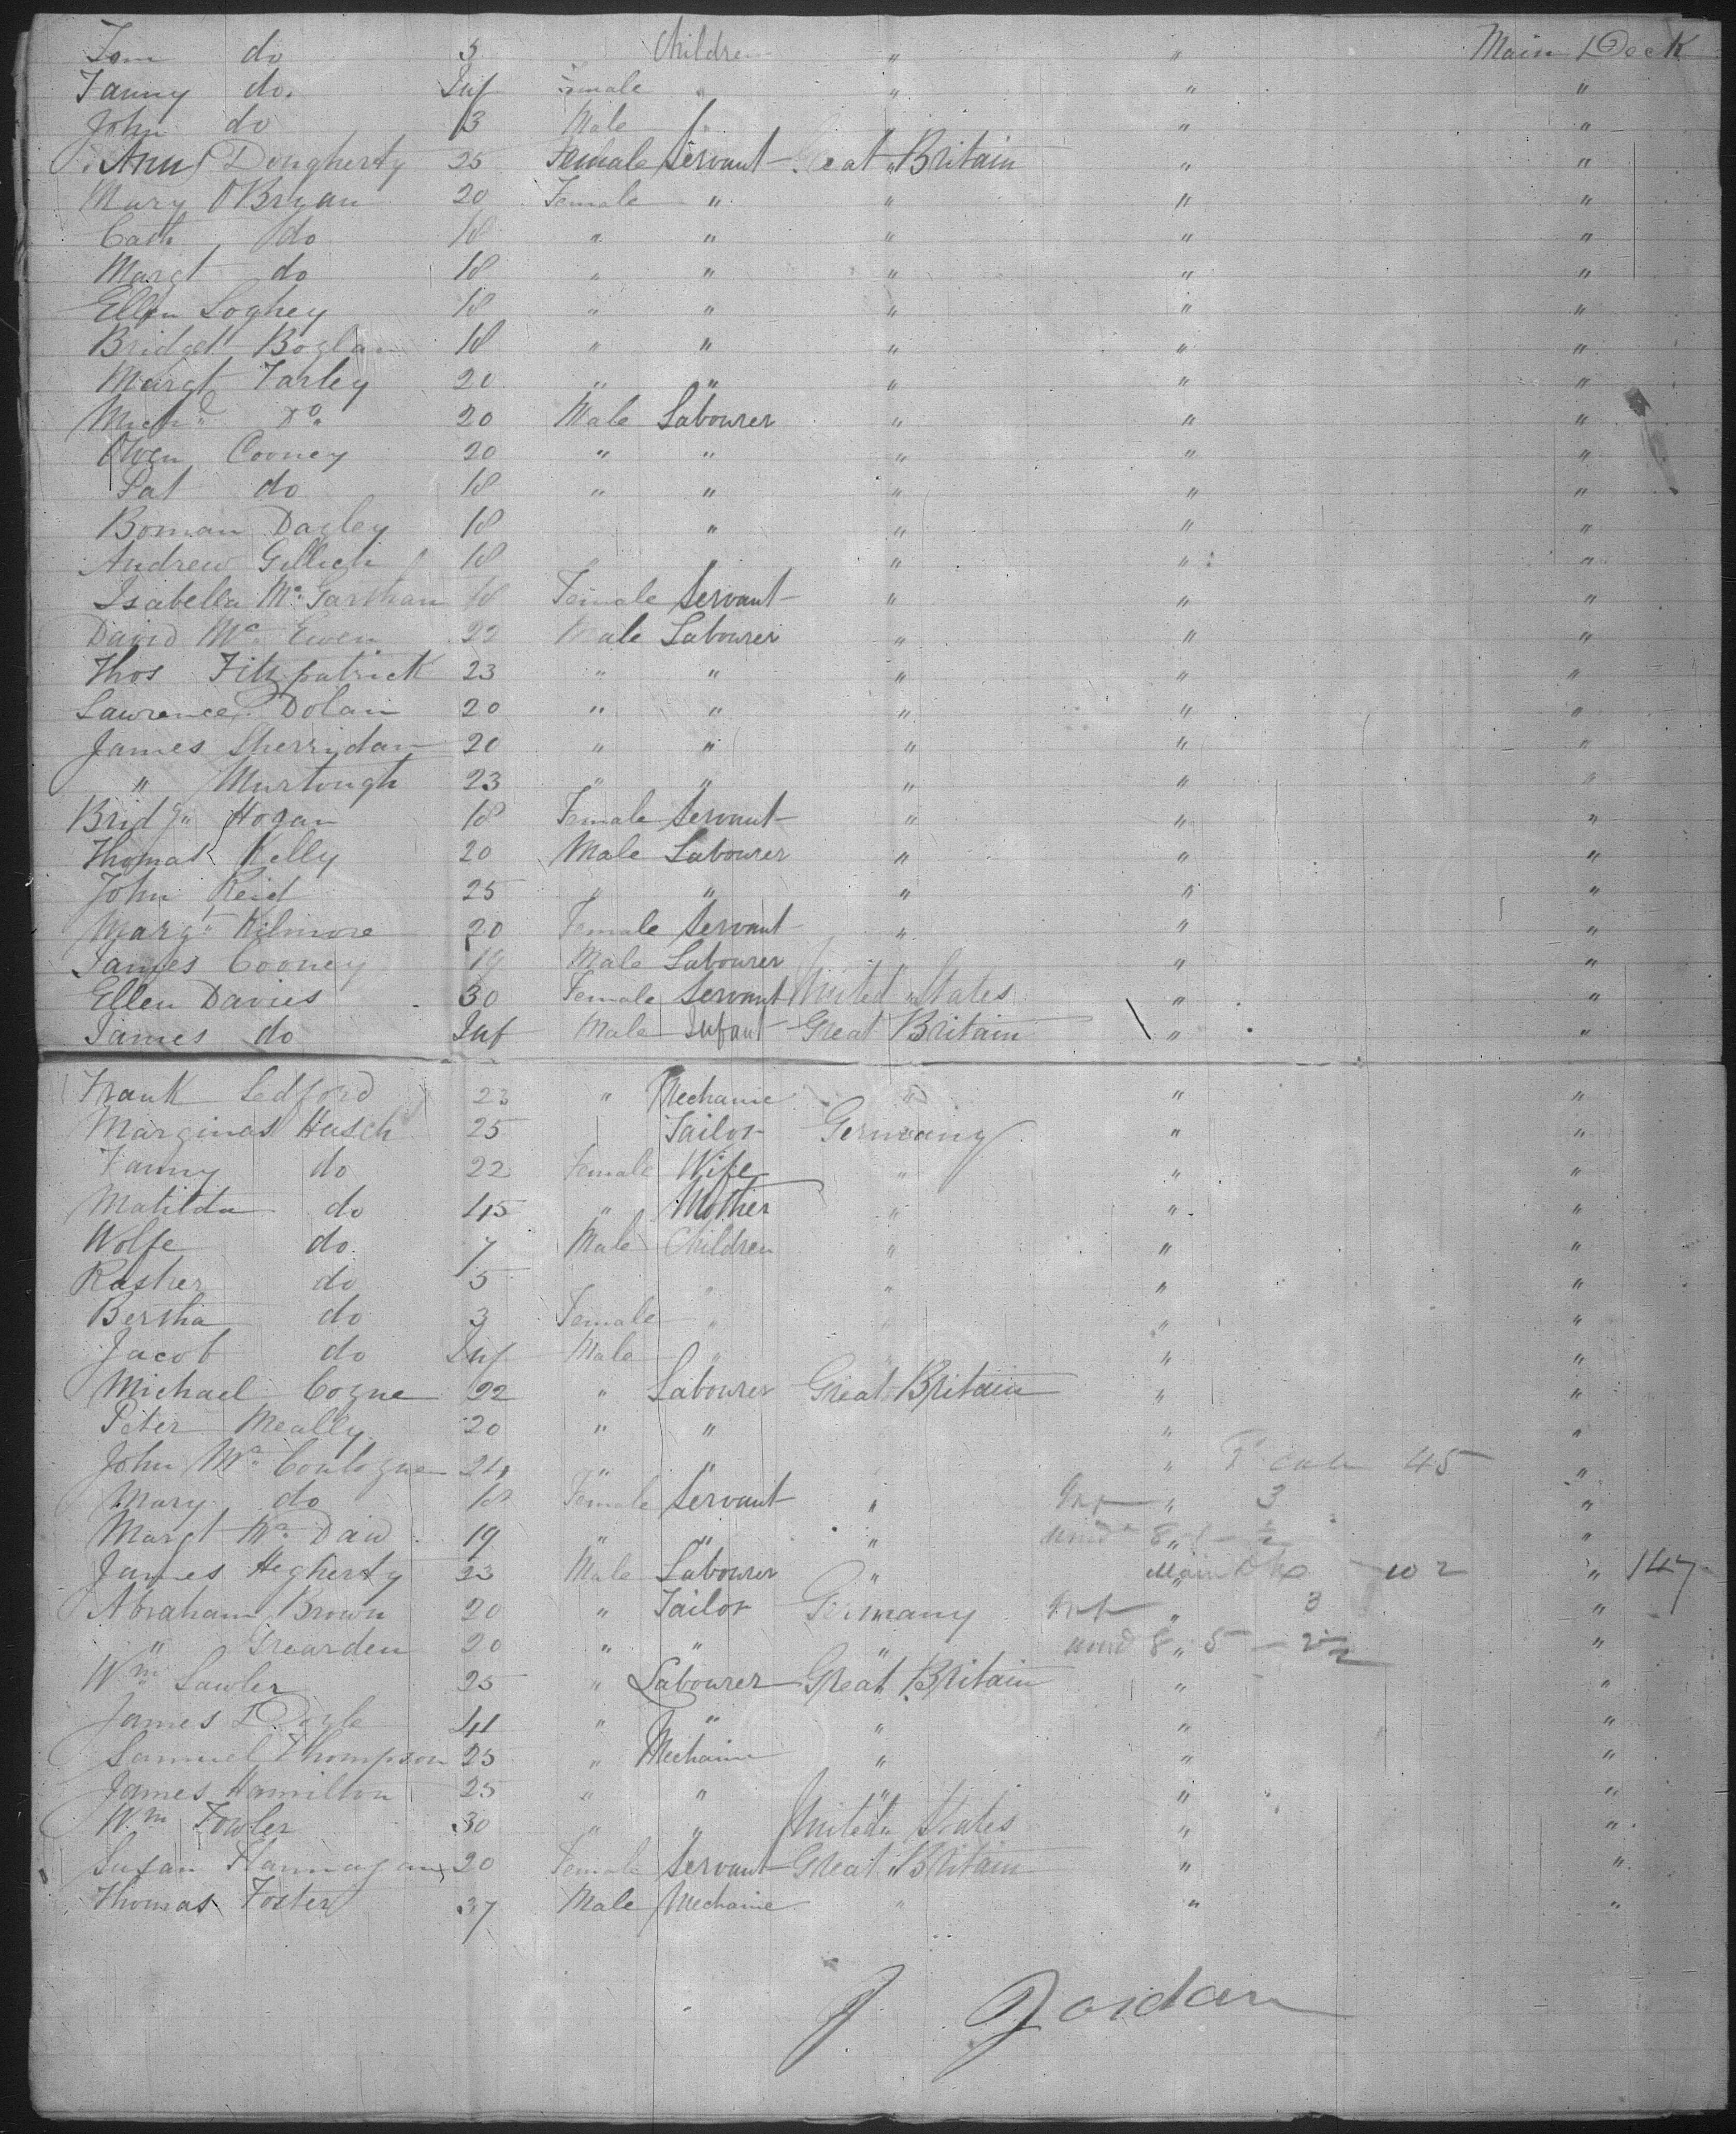 Tom do 5 Children " " Main Deck
Fanny do. Inf Female " " " "
John do 3 Male " " "
Ann Dougherty 25 Female Servant Great Britain " "
Mary O'Bryan 20 Female " " " "
Cath do 18 " " " " "
Margt do 18 " " " " "
Ellen Loghey 18 " " " " "
Bridget Boglan 18 " " " " "
Margt Farley 20 " " " " "
Michl Do 20 Male Labourer " " "
Owen Cooney 20 " " " " "
Pat do 18 " " " " "
Boman Dagley 18 " " " "
Andrew Gillich 18 " " " "
Isabella Mc Garthan 18 Female Servant " " "
David Mc Ewen 22 Male Labourer " " "
Thos Fitzpatrick 23 " " " " "
Lawrence Dolan 20 " " " " "
James Sherridan 20 " " " " "
" Murtough 23 " " " " "
Bridgt Hogan 18 Female Servant " " "
Thomas Kelly 20 Male Labourer " " "
John Reid 25 " " " " "
Margt Kilmore 20 Female Servant " " "
James Cooney 19 Male Labourer " " "
Ellen Davies 30 Female Servant United States " "
James do Inf Male Infant Great Britain " "
Frank Ledford 23 " Mechanic " " "
Marginas Hasch 25 Tailor Germany " "
Fanny do 22 Female Wife " " "
Matilda do 45 " Mother " " "
Wolfe do. 7 Male Children " " "
Rasher do 5 " " " "
Bertha do 3 Female " " " "
Jacob do Inf Male " " " "
Michael Cogne 22 " Labourer Great Britain " "
Peter Meally 20 " " " "
John Mc Coulogne 24 " " " " 45 "
Mary do 18 Female Servant " Inf " 3 "
Margt Mc Daid 19 " " " und 8 "
James Hegherty 23 Male Labourer " Main Dk 102 " 147
Abraham Brown 20 " Tailor Germany Inf " 3 "
" Grearden 20 " " " und 8 " 5 — 2½ "
Wm Lawler 25 " Labourer Great Britain " "
James Doyle 41 " " " " "
Samuel Thompson 25 " Mechanic " " "
James Hamilton 25 " " " " "
Wm Fowler 30 " " United States " "
Susan Flannagan 20 Female Servant Great Britain " "
Thomas Foster 37 Male Mechanic " " "
J Jordan